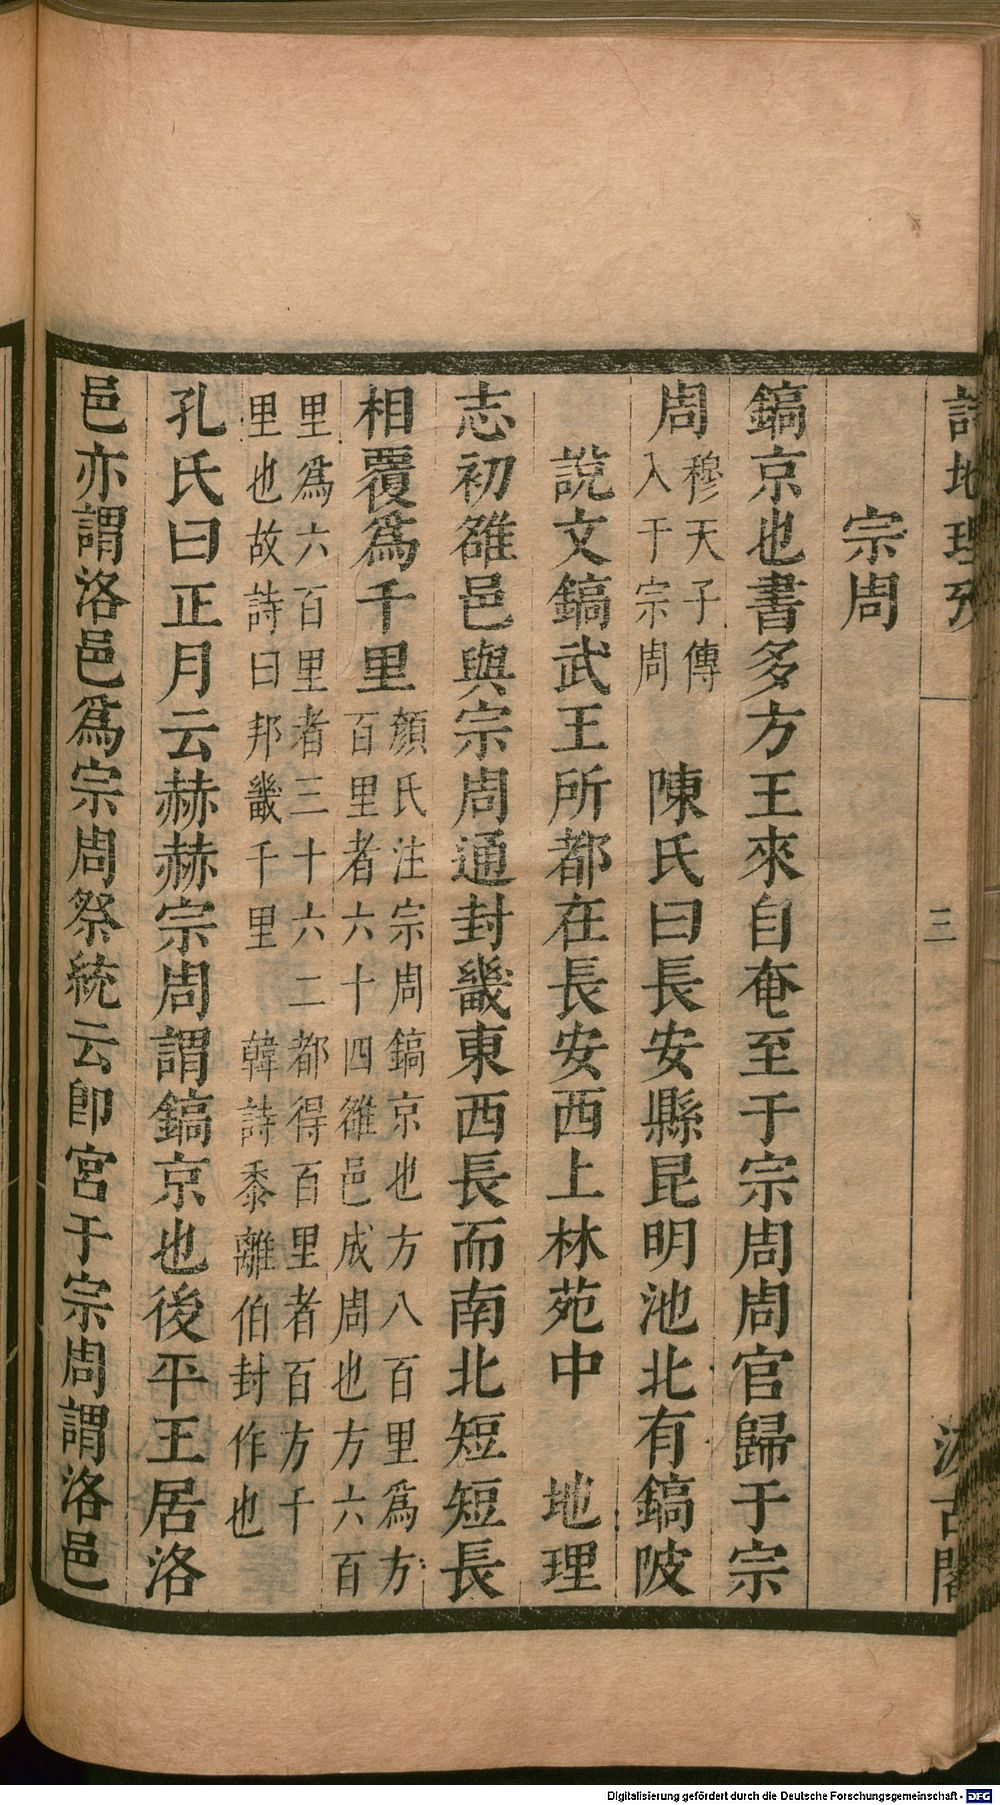 詩地理攷
三
汲古閣
宗周
鎬京也書多方王來自奄至于宗周周官歸于宗
周穆天子傳入于宗周 陳氏曰長安縣昆明池北有鎬陂
說文鎬武王所都在長安西上林苑中 地理
志初雒邑與宗周通封畿東西長而南北短短長
相覆爲千里顏氏注宗周鎬京也方八百里爲方百里者六十四雒邑成周也方六百
里爲六百里者三十六二都得百里者百方千里也故詩曰邦畿千里 韓詩黍離伯封作也
孔氏曰正月云赫赫宗周謂鎬京也後平王居洛
邑亦謂洛邑爲宗周祭統云卽宮于宗周謂洛邑
Digitalisierung gefördert durch die Deutsche Forschungsgemeinschaft - DFG